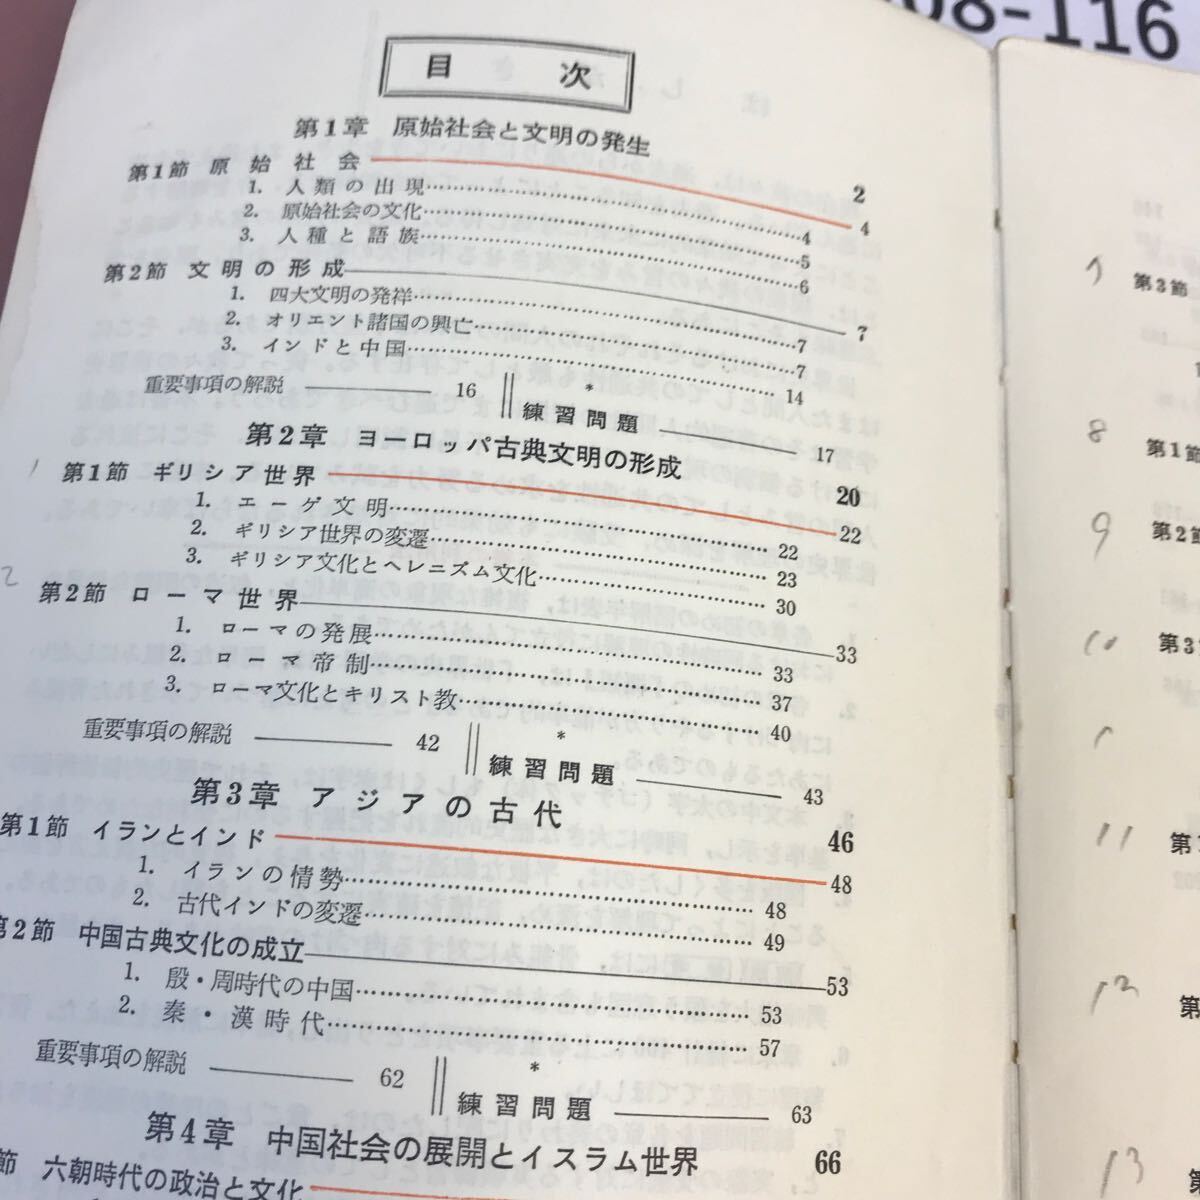 08-116
目次
第1章 原始社会と文明の発生 2
第1節 原始社会 4
1. 人類の出現 4
2. 原始社会の文化 5
3. 人種と語族 6
第2節 文明の形成 7
1. 四大文明の発祥 7
2. オリエント諸国の興亡 7
3. インドと中国 14
重要事項の解説 16 * 練習問題 17
第2章 ヨーロッパ古典文明の形成 20
1 第1節 ギリシア世界 22
1. エーゲ文明 22
2. ギリシア世界の変遷 23
3. ギリシア文化とヘレニズム文化 30
2 第2節 ローマ世界 33
1. ローマの発展 33
2. ローマ帝制 37
3. ローマ文化とキリスト教 40
重要事項の解説 42 * 練習問題 43
第3章 アジアの古代 46
第1節 イランとインド 48
1. イランの情勢 48
2. 古代インドの変遷 49
第2節 中国古典文化の成立 53
1. 殷・周時代の中国 53
2. 秦・漢時代 57
重要事項の解説 62 * 練習問題 63
第4章 中国社会の展開とイスラム世界 66
節 六朝時代の政治と文化
第3節
8 第1節
9 第2節
10 第3
11 第
12 第
13 第